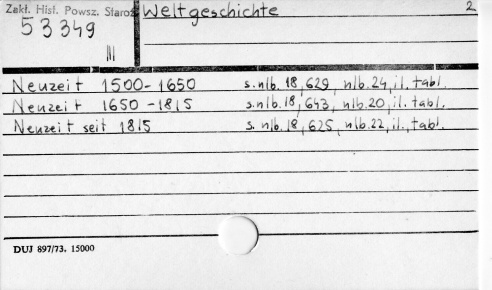 Zakł. Hist. Powsz. Staroż Weltgeschichte 2
53349
III
Neuzeit 1500-1650 s. nlb. 18, 629, nlb. 24, il. tabl.
Neuzeit 1650-1815 s. nlb. 18, 643, nlb. 20, il., tabl.
Neuzeit seit 1815 s. nlb. 18, 625, nlb. 22, il., tabl.
DUJ 897/73. 15000